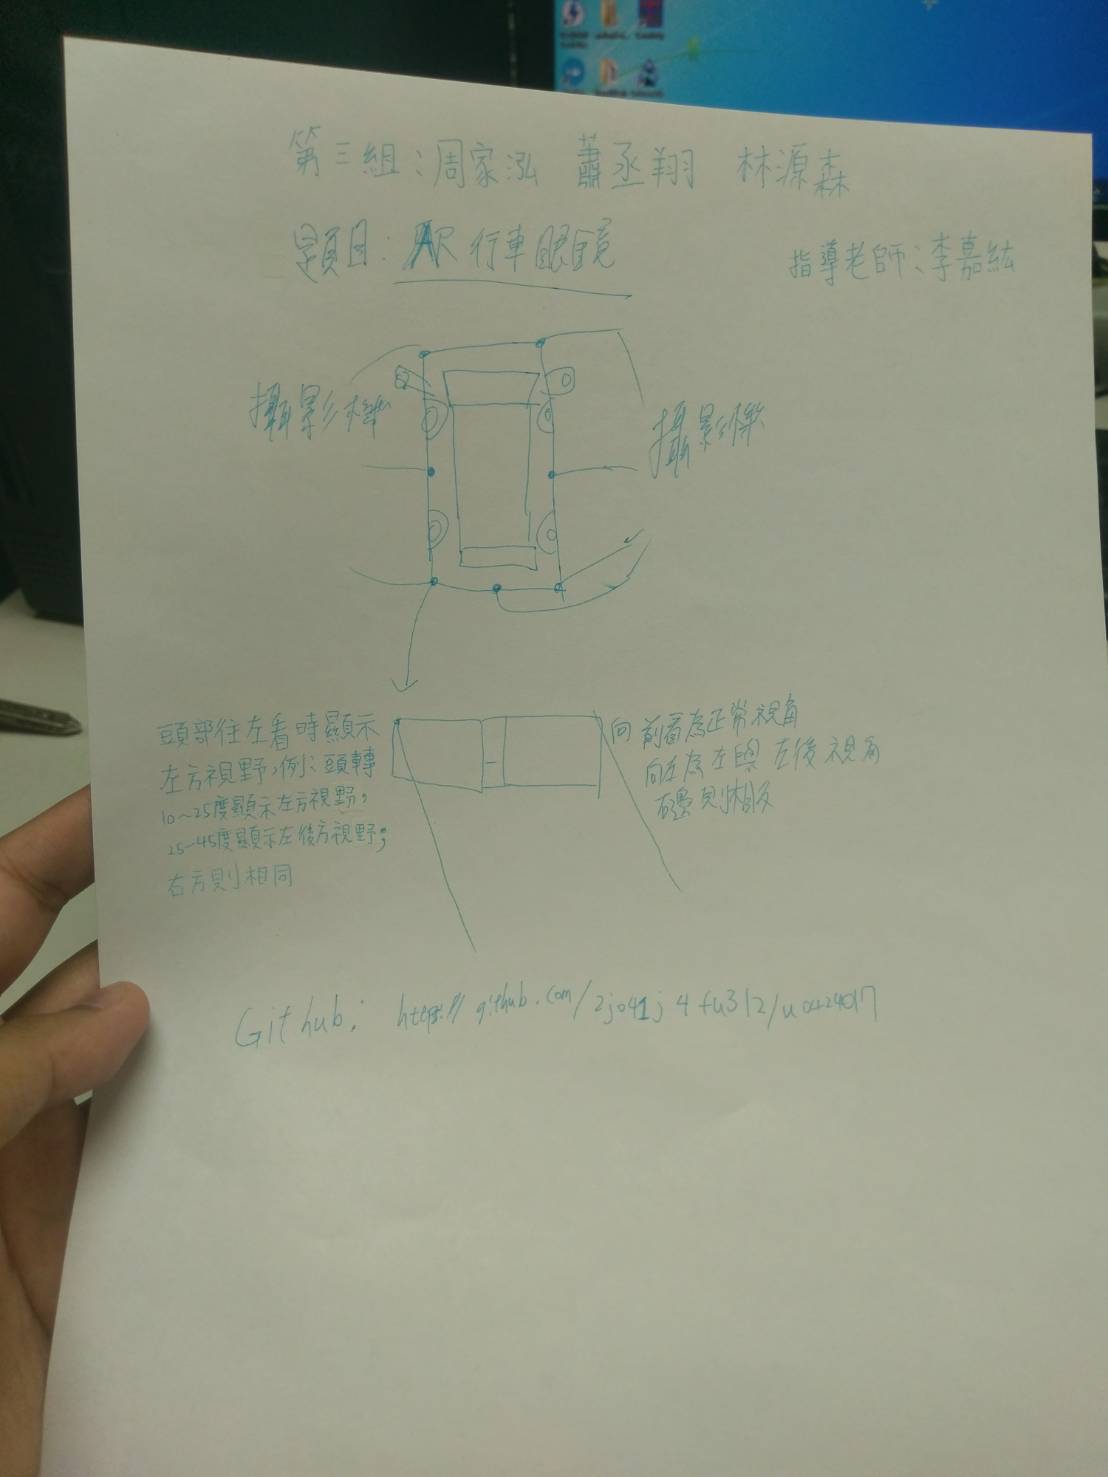 第三組：周家泓 蕭丞翔 林源森
題目：AR行車眼鏡
指導老師：李嘉紘
攝影機
攝影機
頭部往左看時顯示
左方視野，例：頭轉
10～25度顯示左方視野，
25-45度顯示左後方視野；
右方則相同
向前看為正常視角
向左為左與左後視角
右邊則相反
Github: https://github.com/